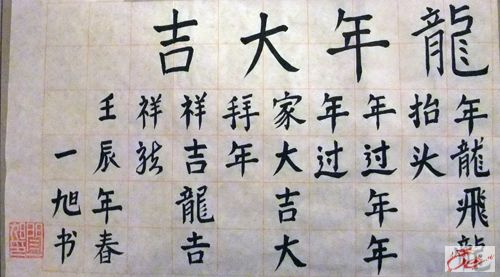 龍年大吉
年龍飛龍
抬头
年过年年
年过
家大吉大
拜年
祥吉龍吉
祥
壬辰年春
一旭书